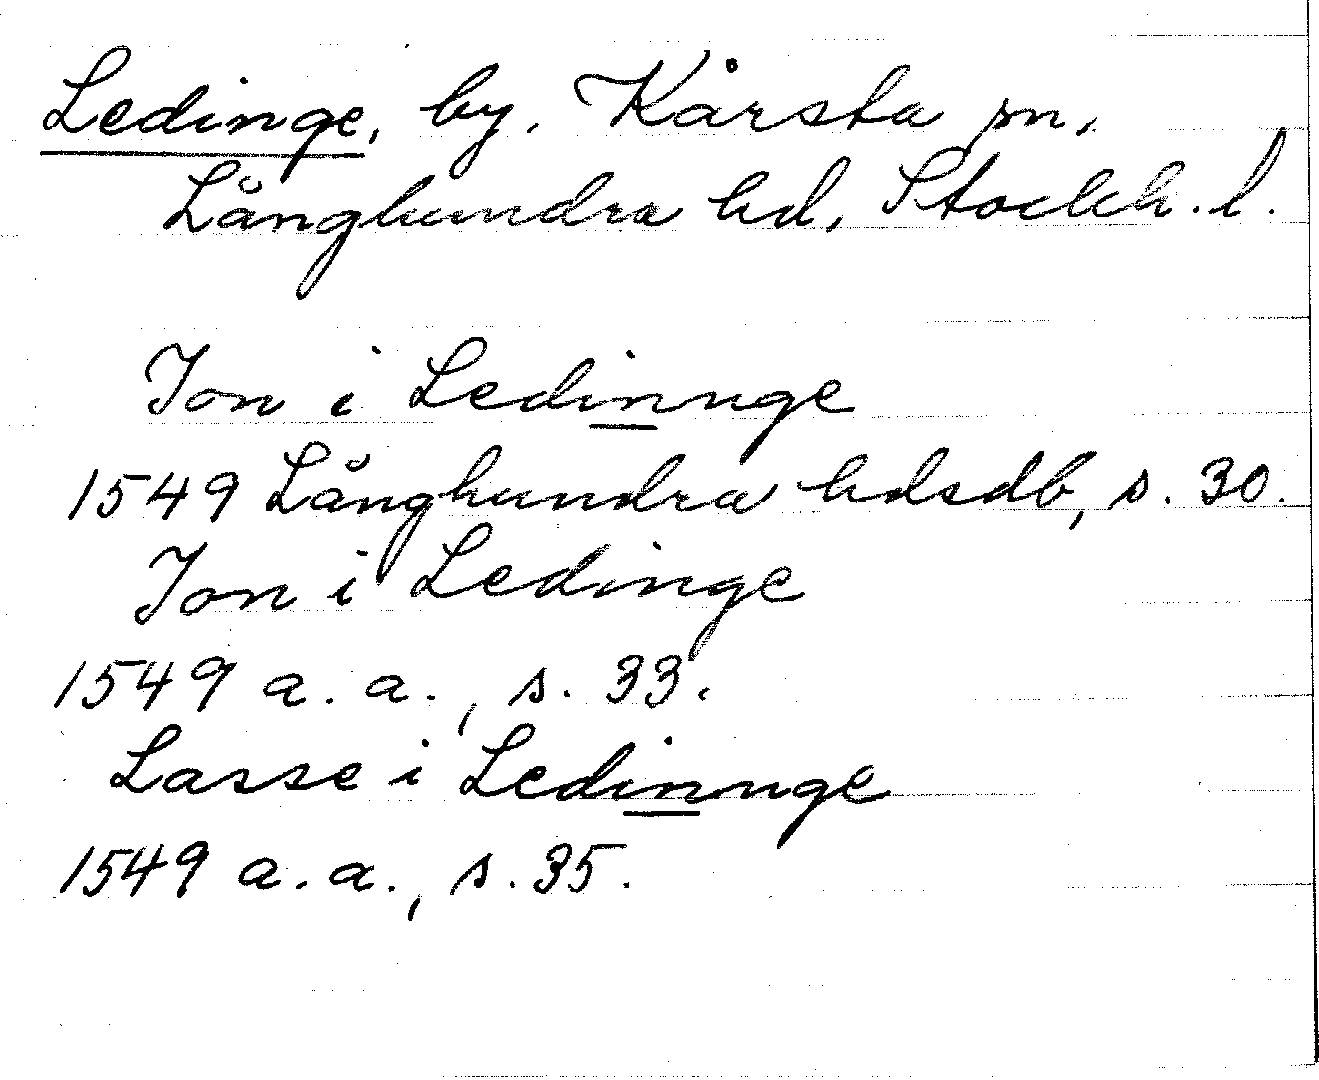 Ledinge, by, Kårsta sn,
Långhundra hd, Stockh. l.
Jon i Ledinnge
1549 Långhundra hdsdb, s. 30.
Jon i Ledinge
1549 a. a., s. 33.
Lasse i Ledinnge
1549 a. a., s. 35.